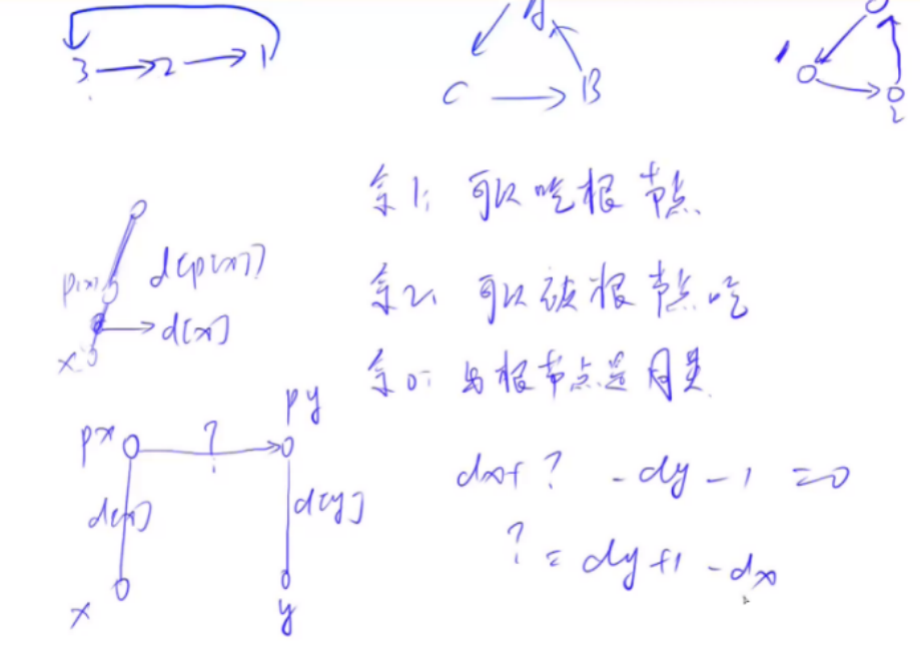 3 → 2 → 1
A
C → B
1
2
余1: 可以吃根节点
余2: 可以被根节点吃
余0: 与根节点是同类
p(x)
d[p[x]]
d[x]
x
px
?
py
d[x]
d[y]
x
y
dx+? -dy-1 =0
? = dy+1 -dx